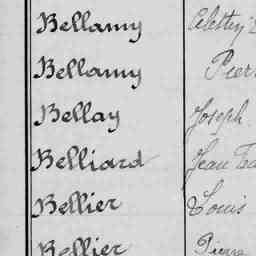 Bellamy
Bellamy Pier
Bellay Joseph
Belliard Jean
Bellier Louis
Bellier Pierre